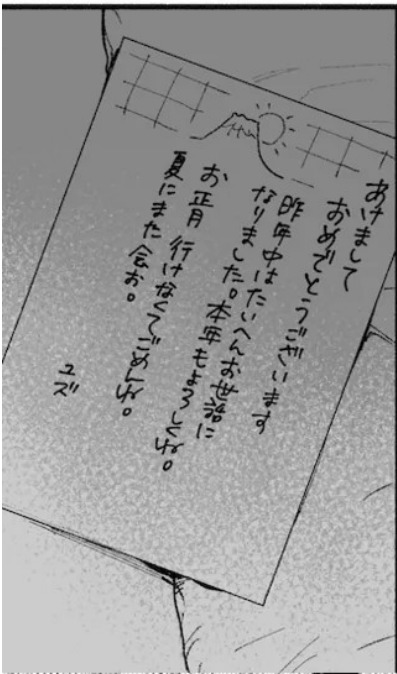 あけまして
おめでとうございます
昨年中はたいへんお世話に
なりました。本年もよろしくね。
お正月 行けなくてごめんね。
夏にまた会お。
ユズ